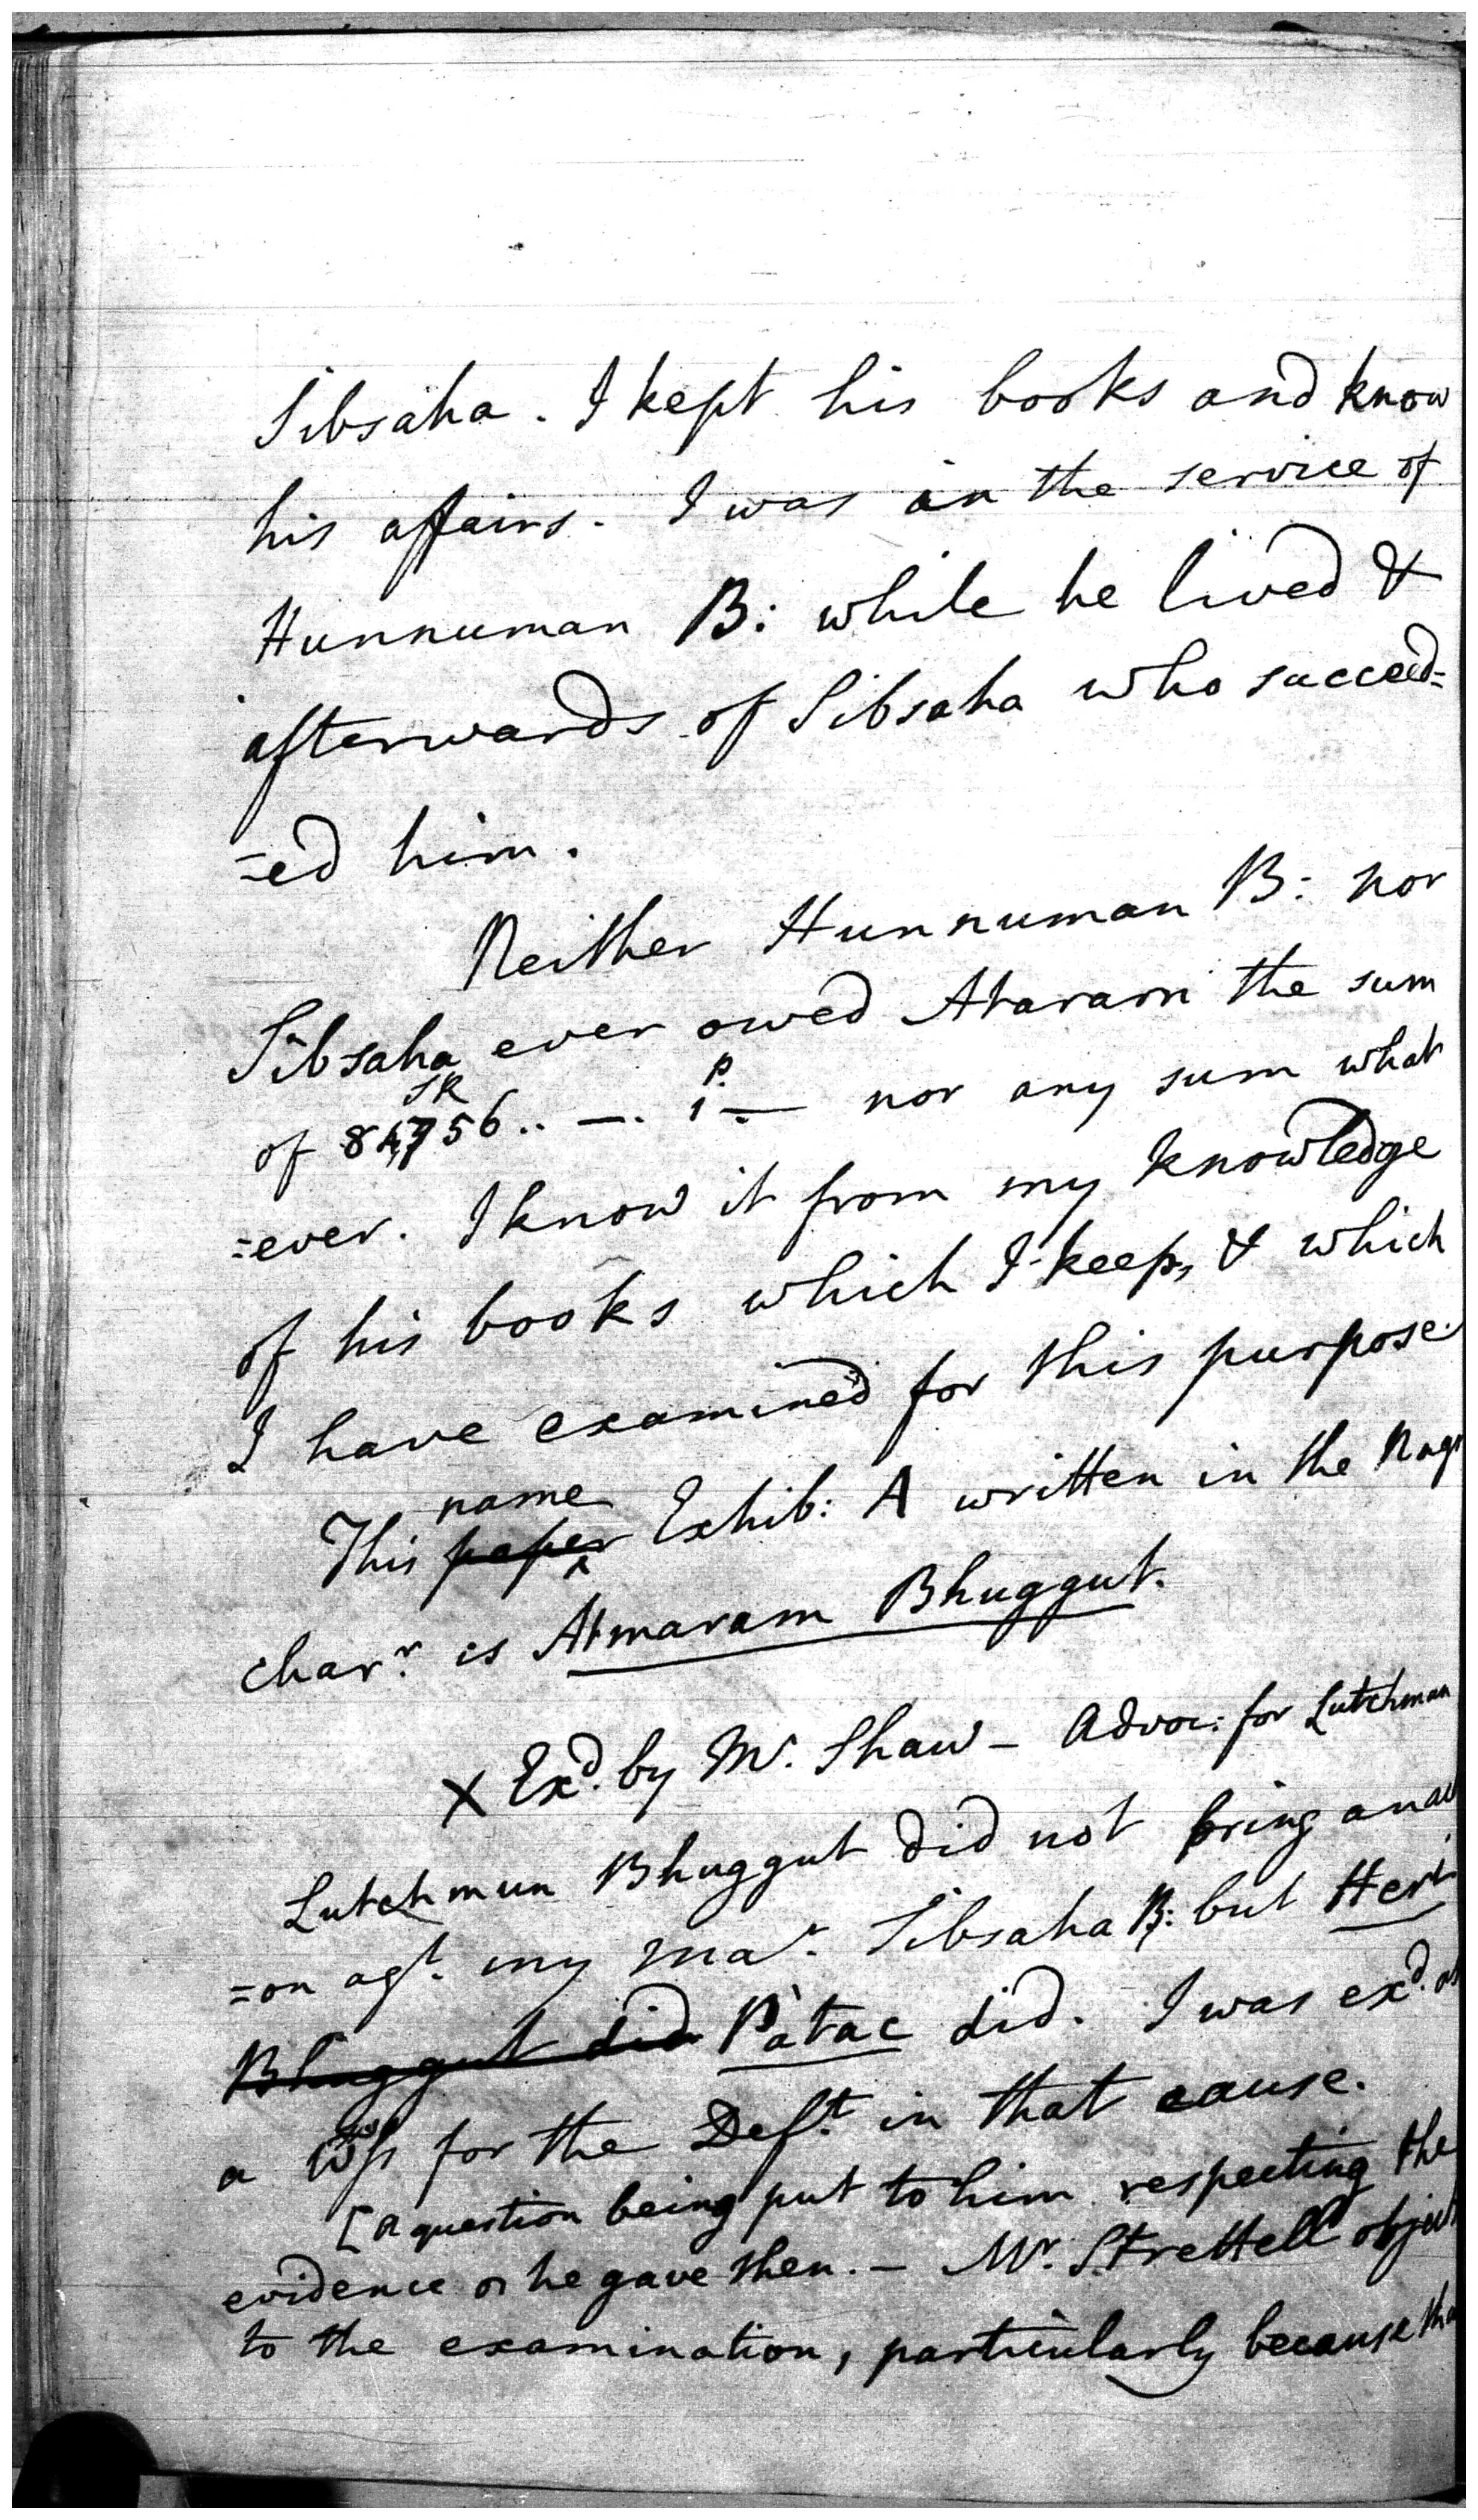 Sibsaha. I kept his books and know
his affairs. I was in the service of
Hunnuman B: while he lived &
afterwards of Sibsaha who succeed=
=ed him.
Neither Hunnuman B: nor
Sibsaha ever owed Ataram the sum
SR P.
of 84,756.. —. 1 — nor any sum what
=ever. I know it from my knowledge
of his books which I keep, & which
I have examined for this purpose.
name
This paper Exhib: A written in the Nag
charr. is Atmaram Bhuggut.
X Exd. by Mr. Shaw – Advoc: for Lutchman
Lutchmun Bhuggut did not bring an
=on agt. my mar. Sibsaha B: but Heri
Bhuggut did Pàtac did. I was exd.
a for the Deft. in that cause.
[A question being put to him respecting the
evidence he gave then. – Mr. Strettell object
to the examination, particularly because tha